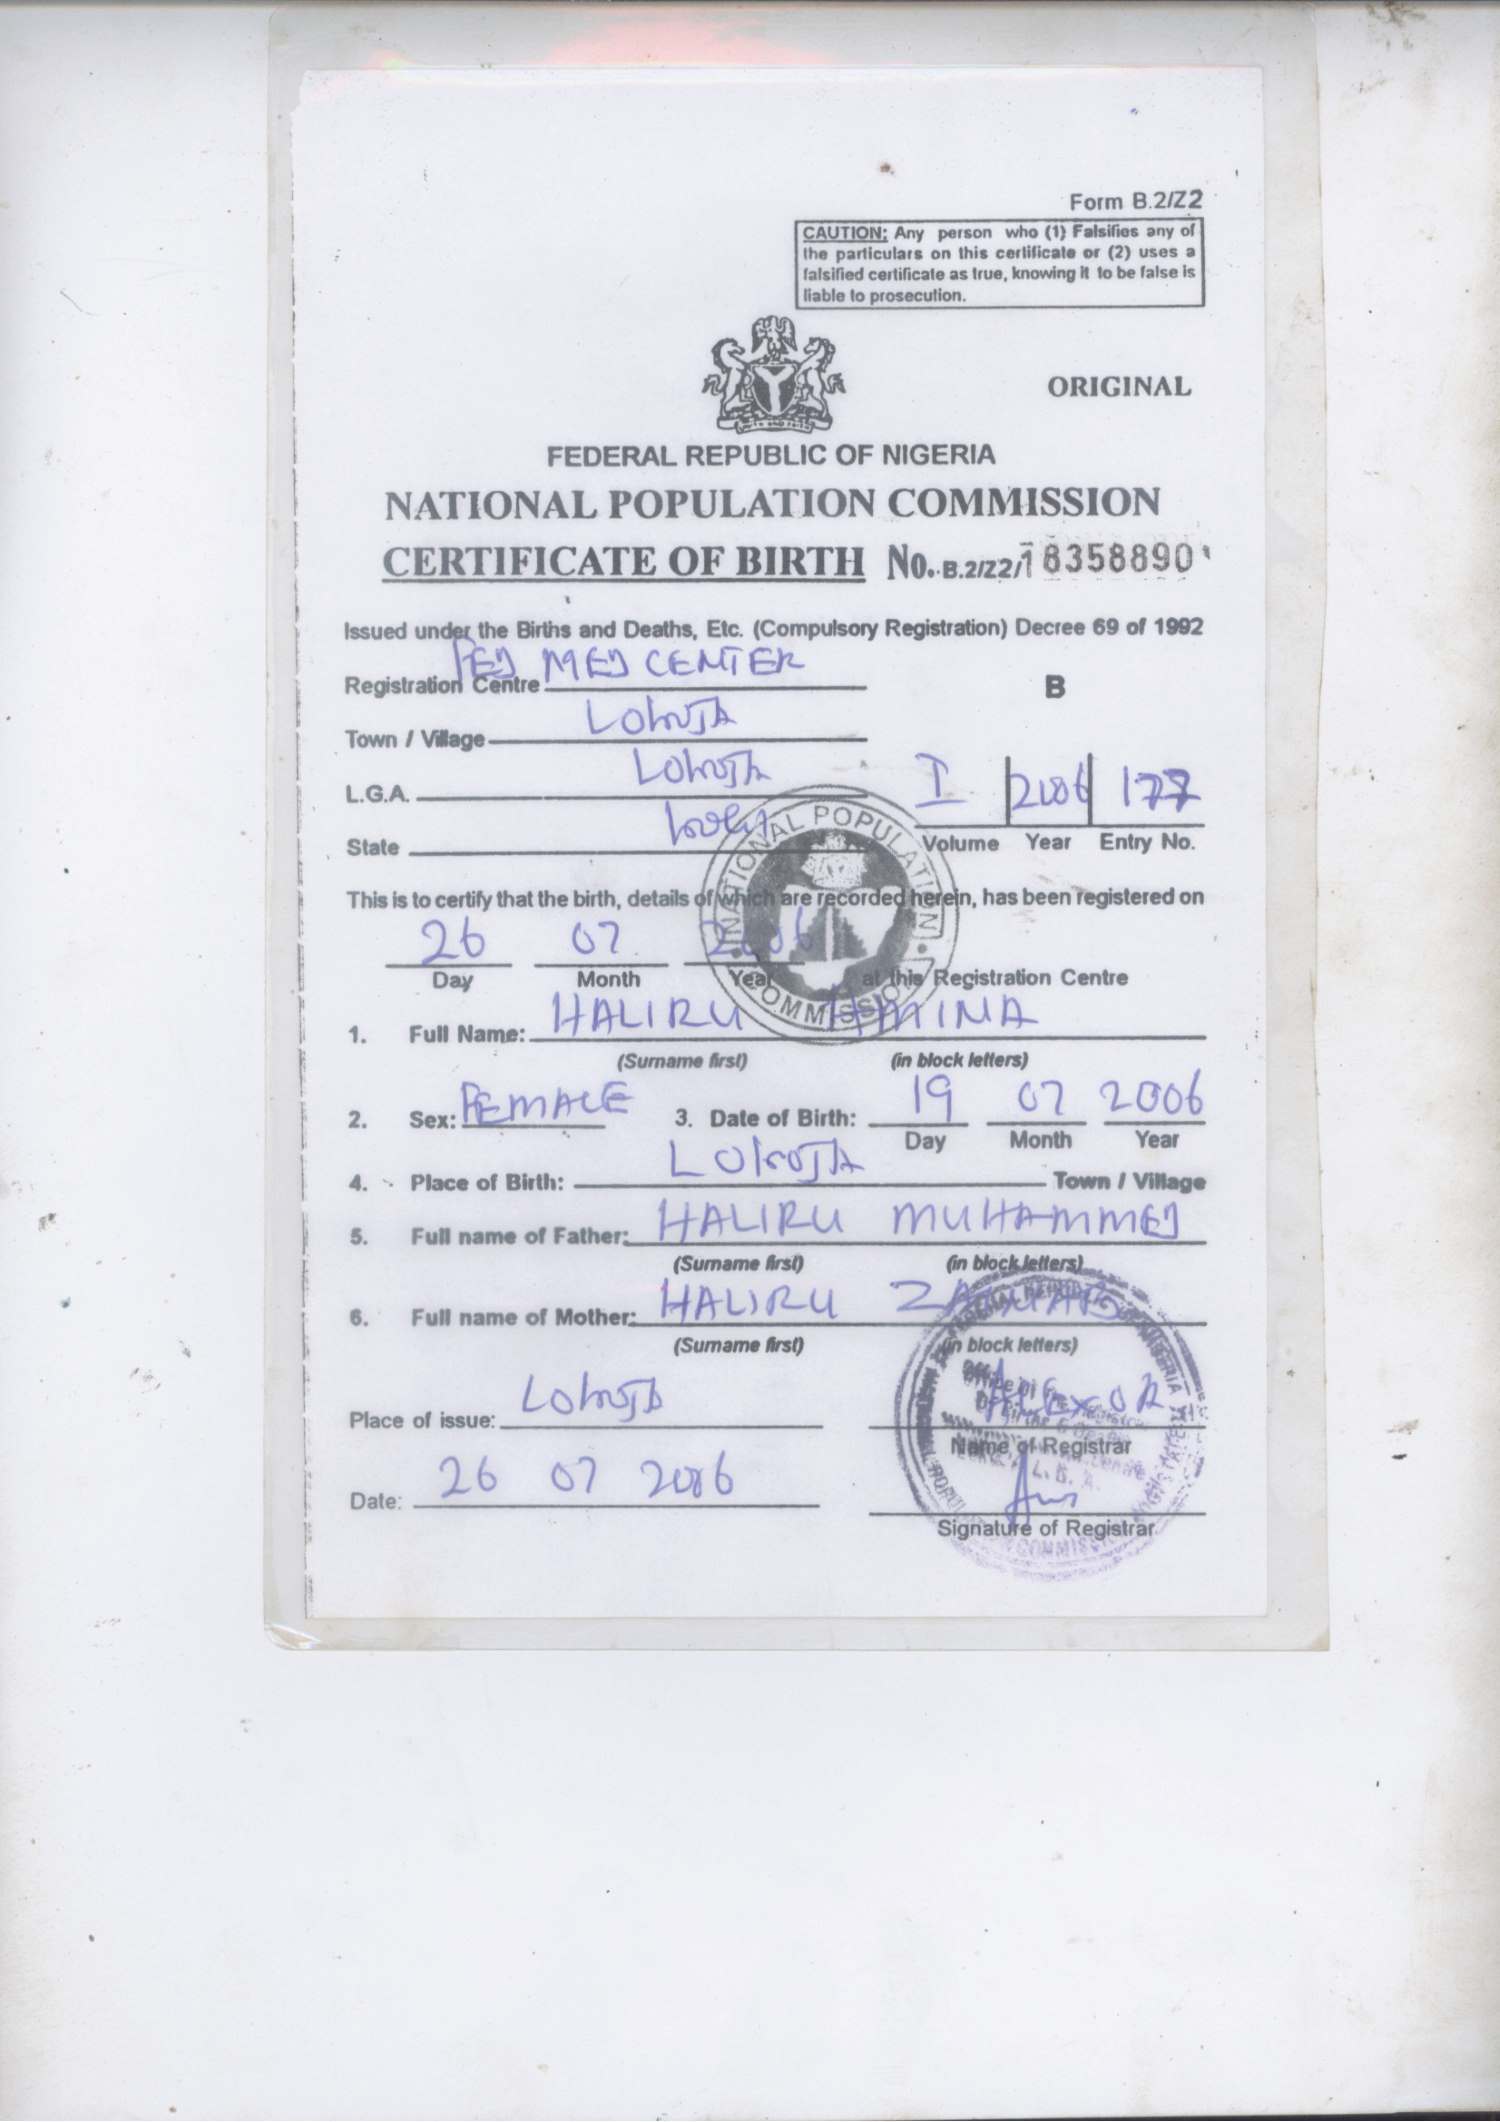 Form B.2/Z2
CAUTION: Any person who (1) Falsifies any of
the particulars on this certificate or (2) uses a
falsified certificate as true, knowing it to be false is
liable to prosecution.
ORIGINAL
FEDERAL REPUBLIC OF NIGERIA
NATIONAL POPULATION COMMISSION
CERTIFICATE OF BIRTH No. B.2/Z2/18358890
Issued under the Births and Deaths, Etc. (Compulsory Registration) Decree 69 of 1992
Registration Centre FED MED CENTER
B
Town / Village LOKOJA
L.G.A. LOKOJA
State KOGI
I 2006 177
Volume Year Entry No.
NATIONAL POPULATION COMMISSION
This is to certify that the birth, details of which are recorded herein, has been registered on
26 07 2006
Day Month Year at this Registration Centre
1. Full Name: HALIRU AMINA
(Surname first) (in block letters)
2. Sex: FEMALE 3. Date of Birth: 19 07 2006
Day Month Year
4. Place of Birth: LOKOJA Town / Village
5. Full name of Father: HALIRU MUHAMMED
(Surname first) (in block letters)
6. Full name of Mother: HALIRU ZAINAB
(Surname first) (in block letters)
Place of issue: LOKOJA
Name of Registrar
Date: 26 07 2006
Signature of Registrar